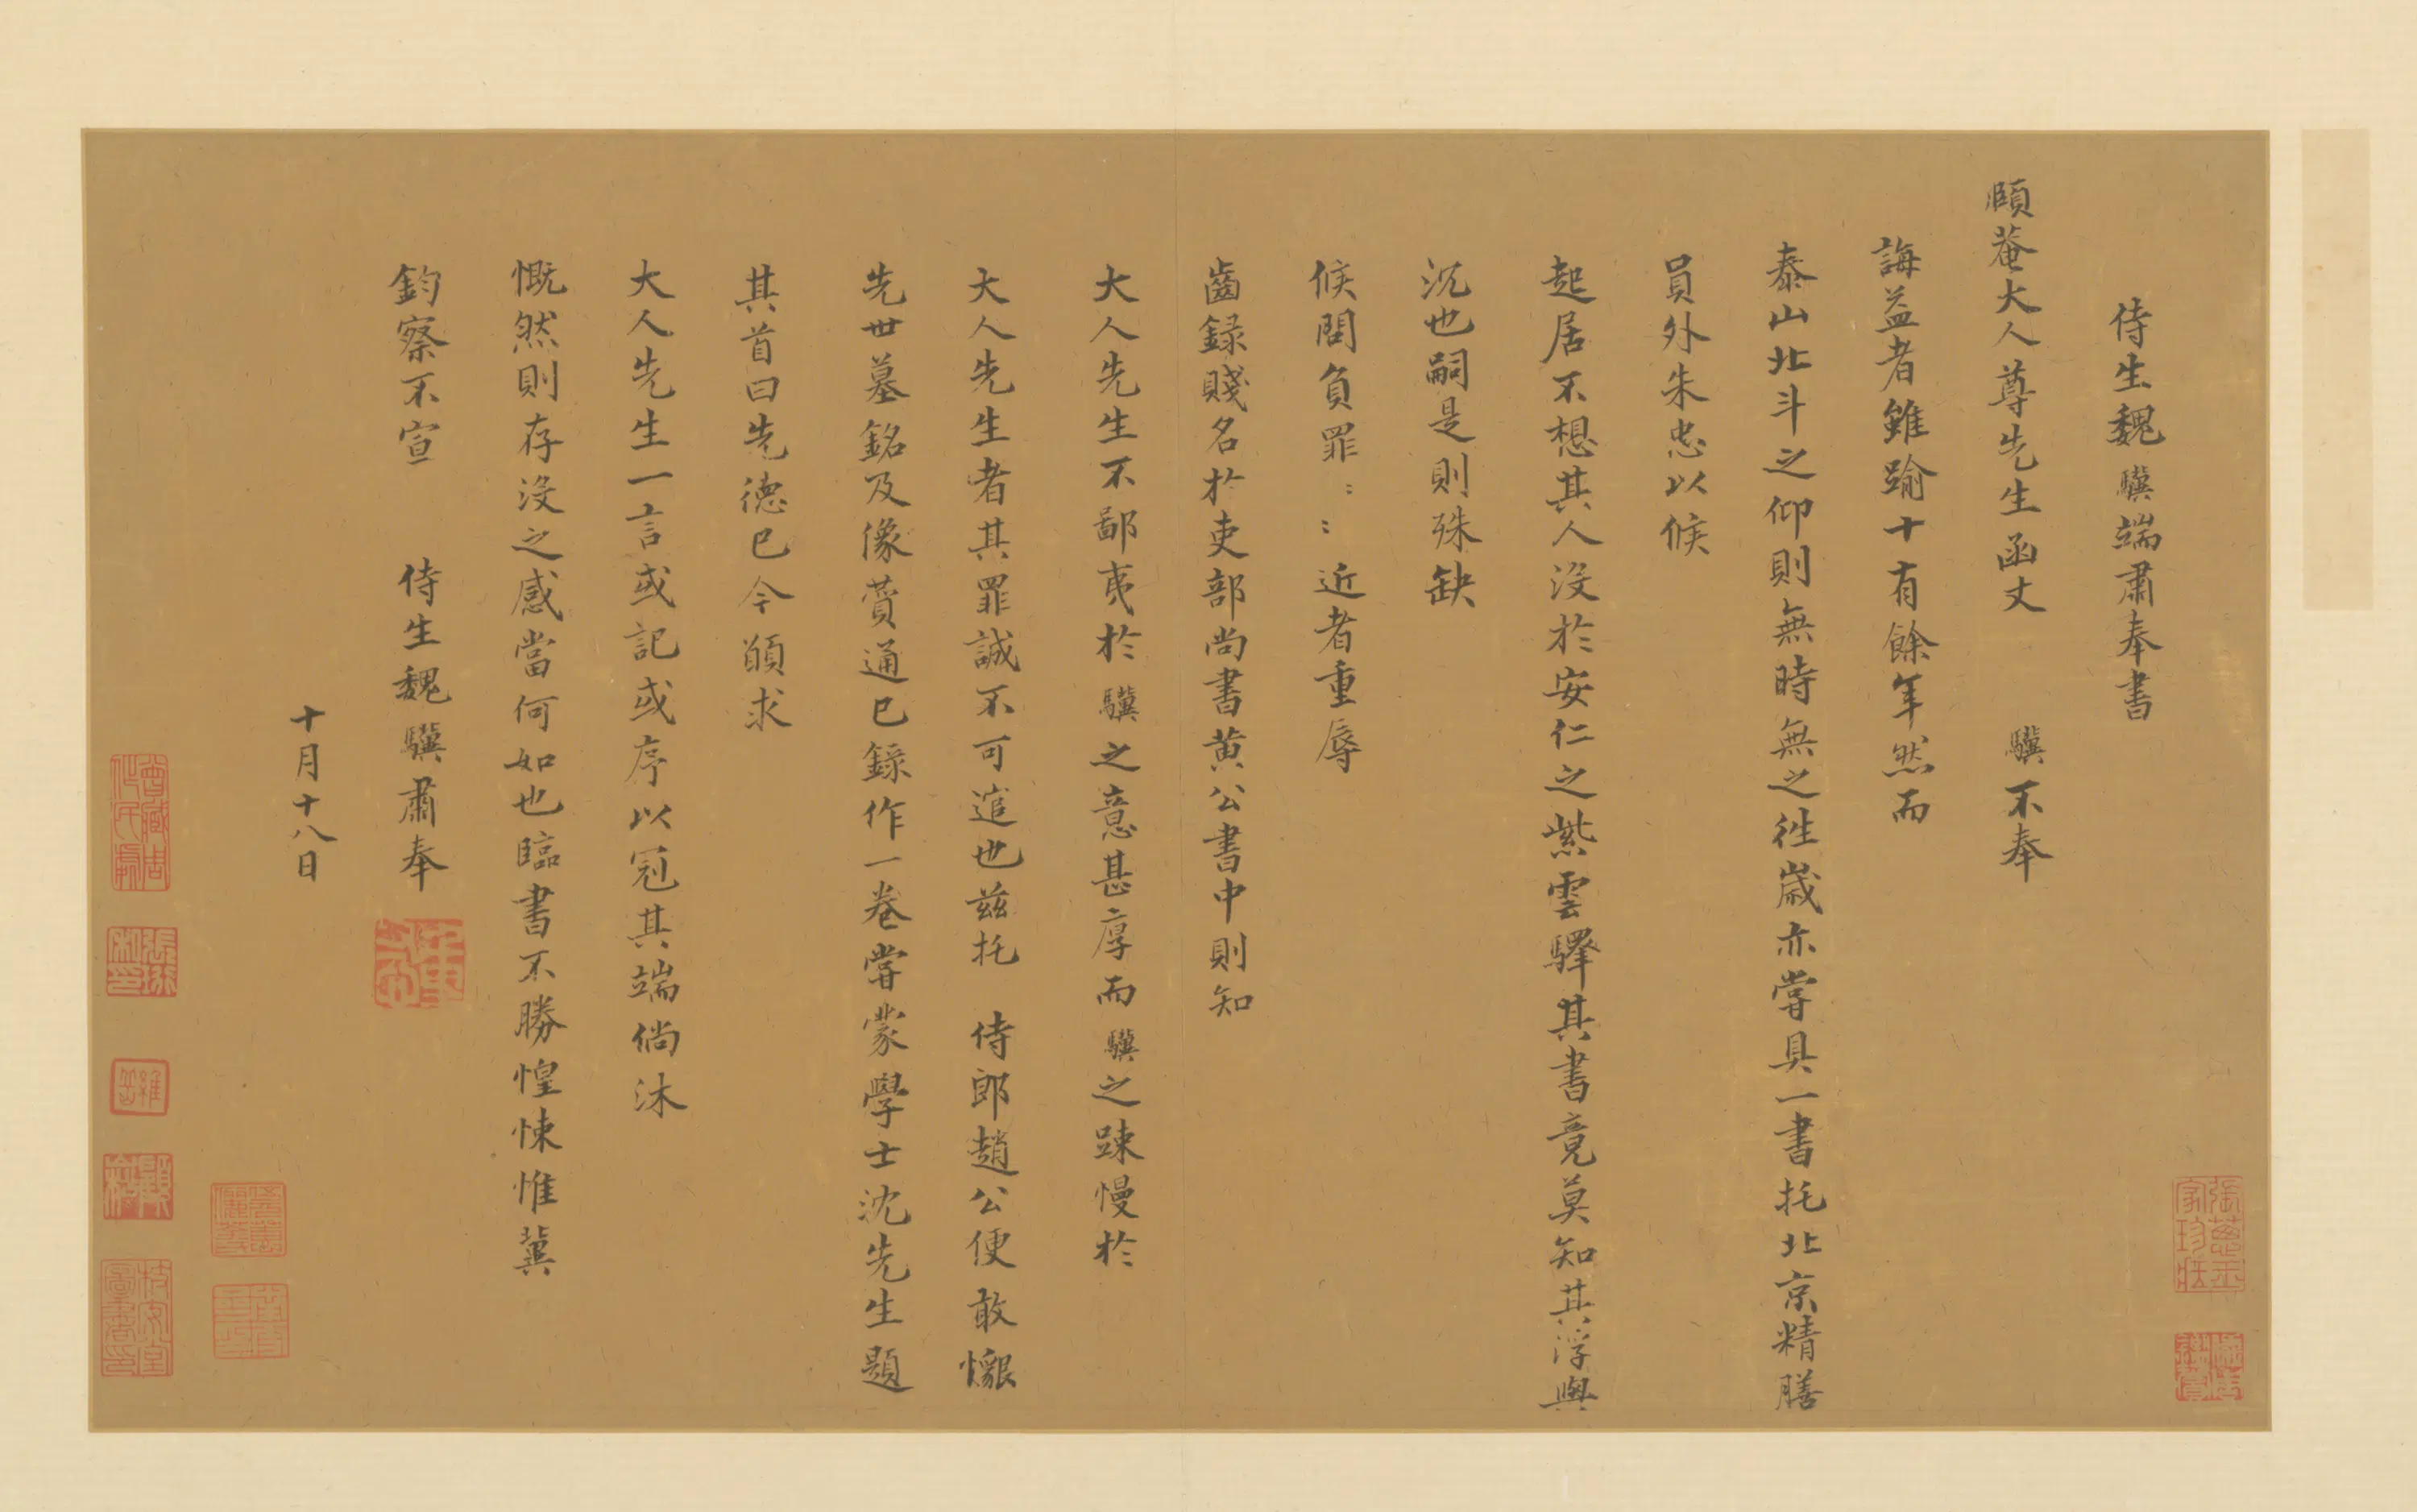 侍生魏驥端肅奉書
頤菴大人尊先生函丈 驥不奉
誨益者雖踰十有餘年然而
泰山北斗之仰則無時無之徃歲亦嘗具一書托北京精膳
員外朱忠以候
起居不想其人沒於安仁之紫雲驛其書竟莫知其浮與
沉也嗣是則殊缺
候問負罪〻〻近者重辱
齒録賤名於吏部尚書黄公書中則知
大人先生不鄙夷於驥之意甚厚而驥之踈慢於
大人先生者其罪誠不可逭也兹托 侍郎趙公便敢懇
先世墓銘及像賛通已錄作一卷嘗蒙學士沈先生題
其首曰先德已今頋求
大人先生一言或記或序以冠其端倘沐
慨然則存沒之感當何如也臨書不勝惶悚惟冀
鈞察不宣 侍生魏驥肅奉
十月十八日